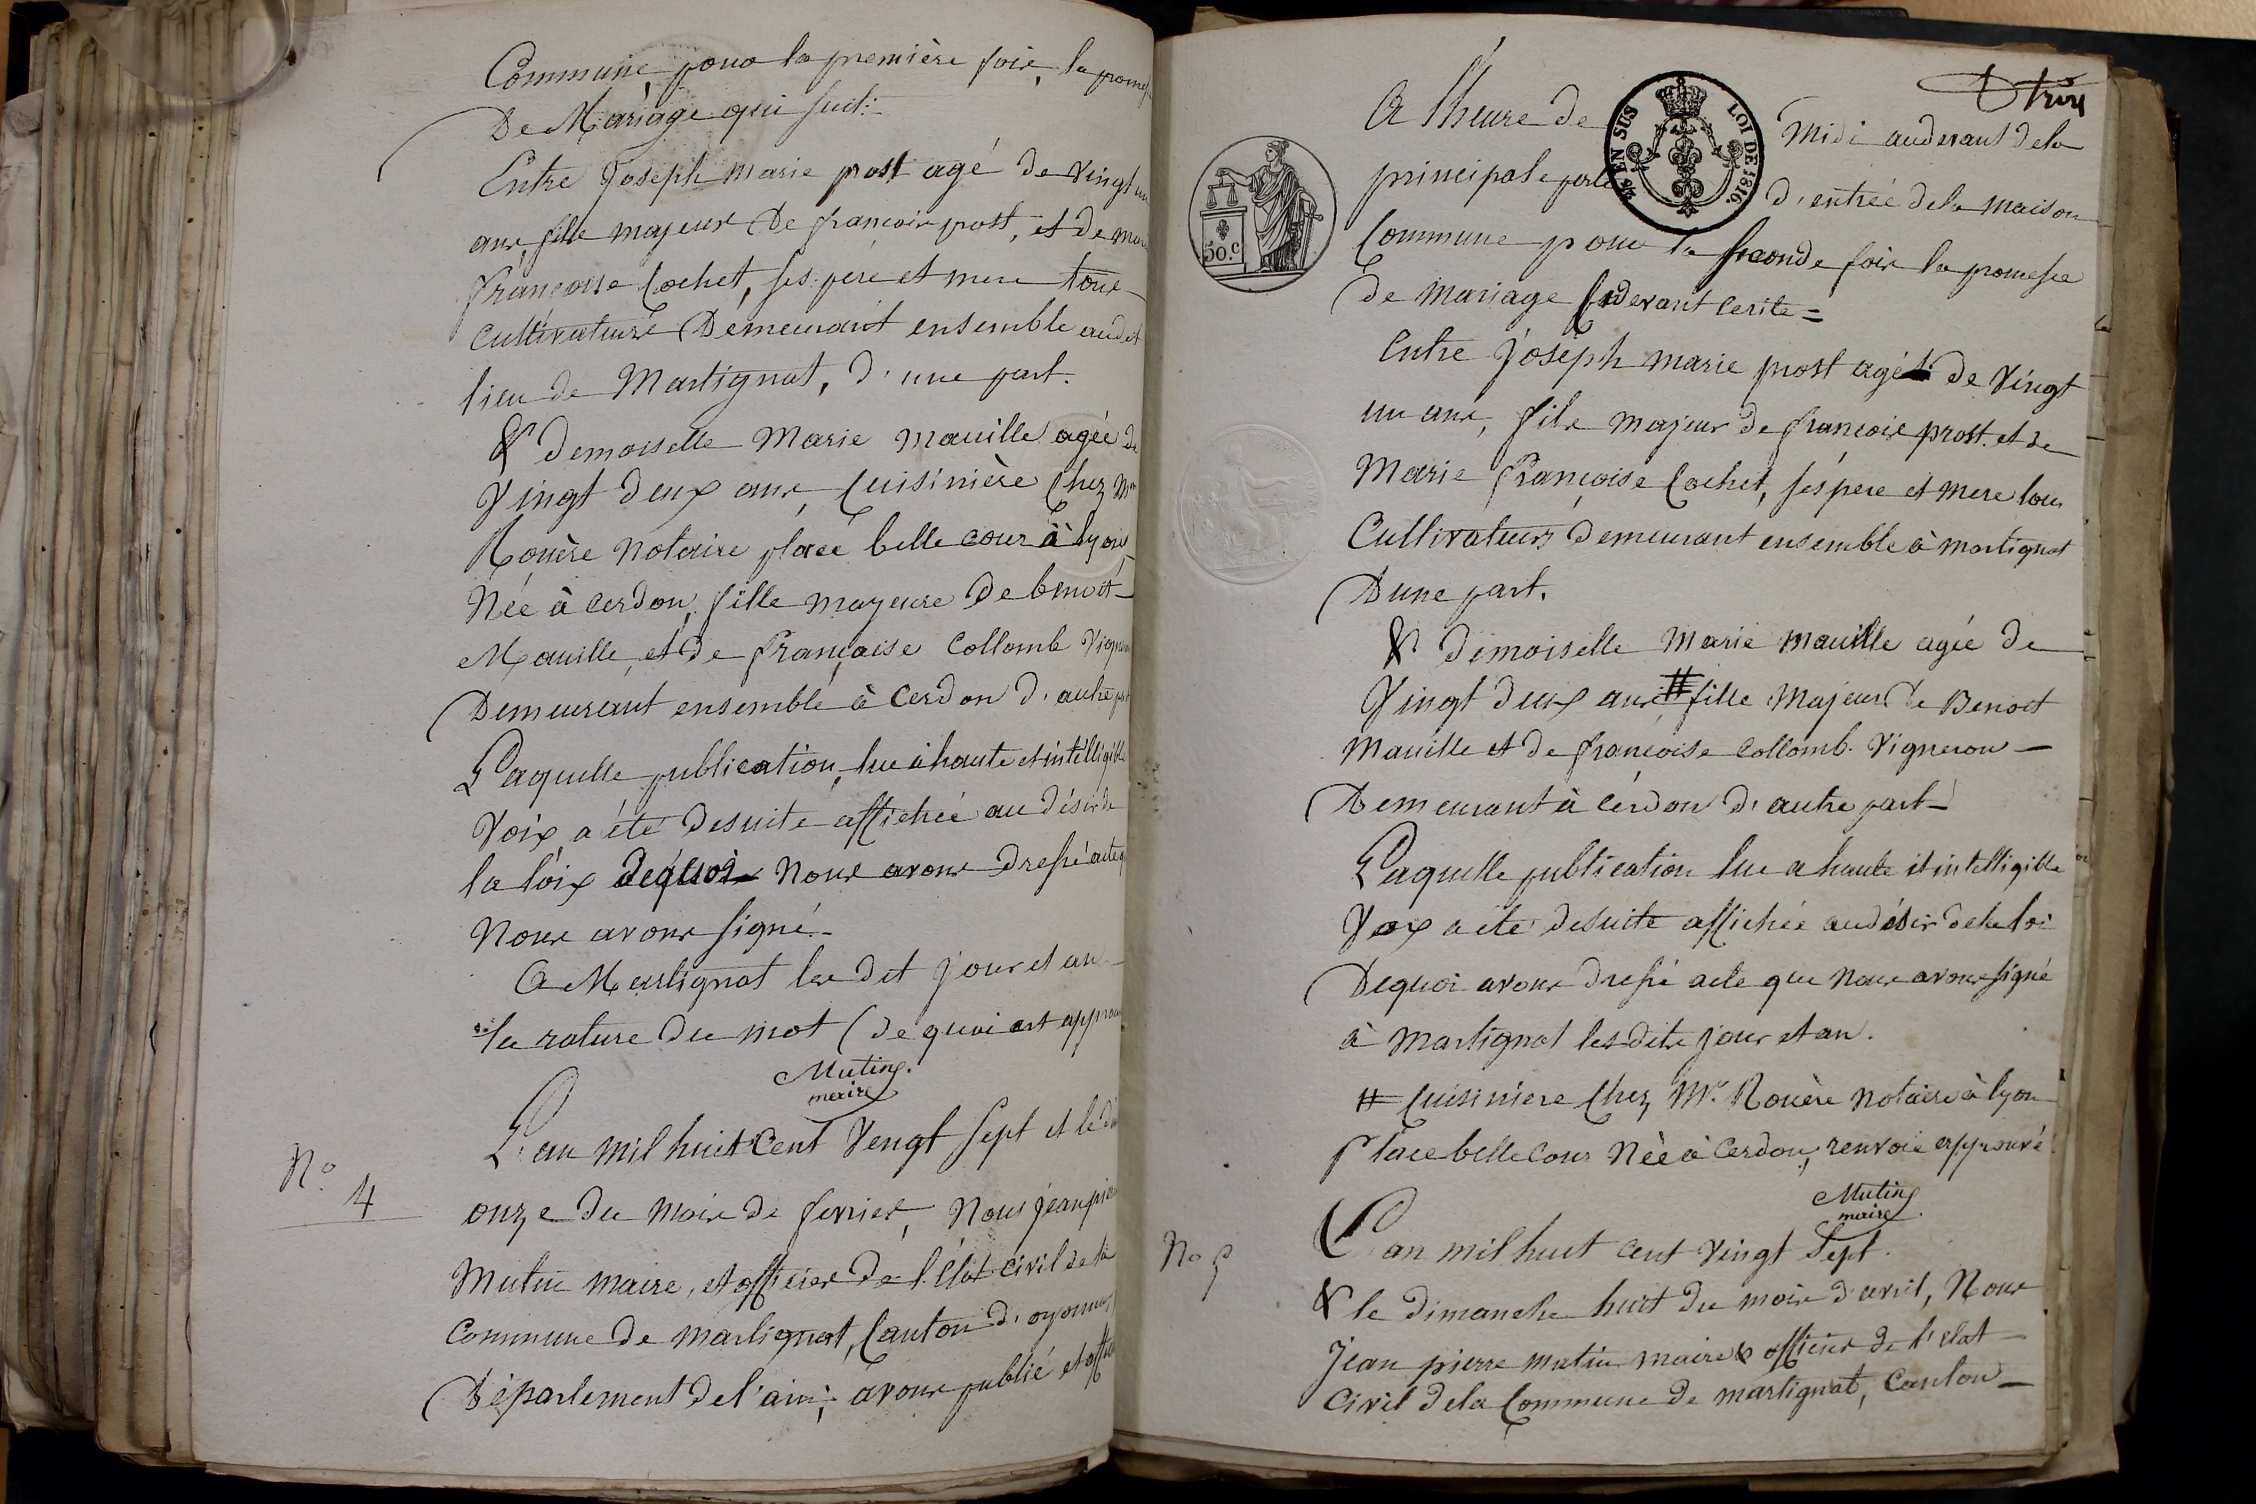 Commune, pour la première fois, la promes
De Mariage qui suit:
Entre Joseph marie prost agé de vingt un
ans, fils majeur De francois prost, et de marie
françoise Cochet, ses pere et mere tous
cultivateurs Demeurant ensemble audit
lieu de Martignat, d'une part.
& demoiselle Marie mauille agée de
Vingt deux ans, Cuisinière Chez Mr
Rouère notaire place belle cour à lyon
Née à cerdon, fille majeure De benoit
Mauille, et De françoise Collomb Vigneron
Demeurant ensemble à Cerdon d'autre part
Laquelle publication, lue à haute et intelligible
Voix, a été desuite affichée au désir de
la loix dequoi Nous avons Dressé acte q
Nous avons signé.
A Martignat les dit jour et an
la rature du mot (de quoi est approu
Mutin
maire
N° 4
L'an mil huit cent Vengt sept et le di
onze du mois de fevrier, Nous jean pierre
Mutin maire, et officier de l'Etat civil de la
Commune de martignat, Canton d'oyonnax
Département de l'ain; avons publié et affic
Dtrix
A l'heure de Midi audevant dela
principale porte d'entrée dela maison
Commune pour la seconde fois la promesse
de mariage cidevant Cerite =
Entre joséph marie prost agé de Vingt
un ans, fils majeur de françois prost. et de
Marie françoise Cochet, ses pere et mere tous
Cultivateurs demeurant ensemble à martignat
D'une part.
& demoiselle Marie mauille agée de
Vingt deux ans # fille Majeur De Benoit
Mauille et de françoise Collomb. Vigneron
Demeurant à cérdon d'autre part
Laquelle publication lue a haute et intelligible
Voix a été desuite affichée audésir dela loi
Dequoi avons dressé acte que nous avons signé
à martignat les dits jour et an.
# Cuisiniere Chez Mr. Rouère notaire à lyon
place belle cour Née à Cerdon, renvoie approuvé
Mutin
maire
No 5
L'an mil huit cent vingt Sept
& le dimanche huit du mois d'avril, Nous
Jean pierre mutin maire & officier de l'etat
Civil dela Commune de martignat, Canton
50.c
EN SUS
LOI DE 1816.